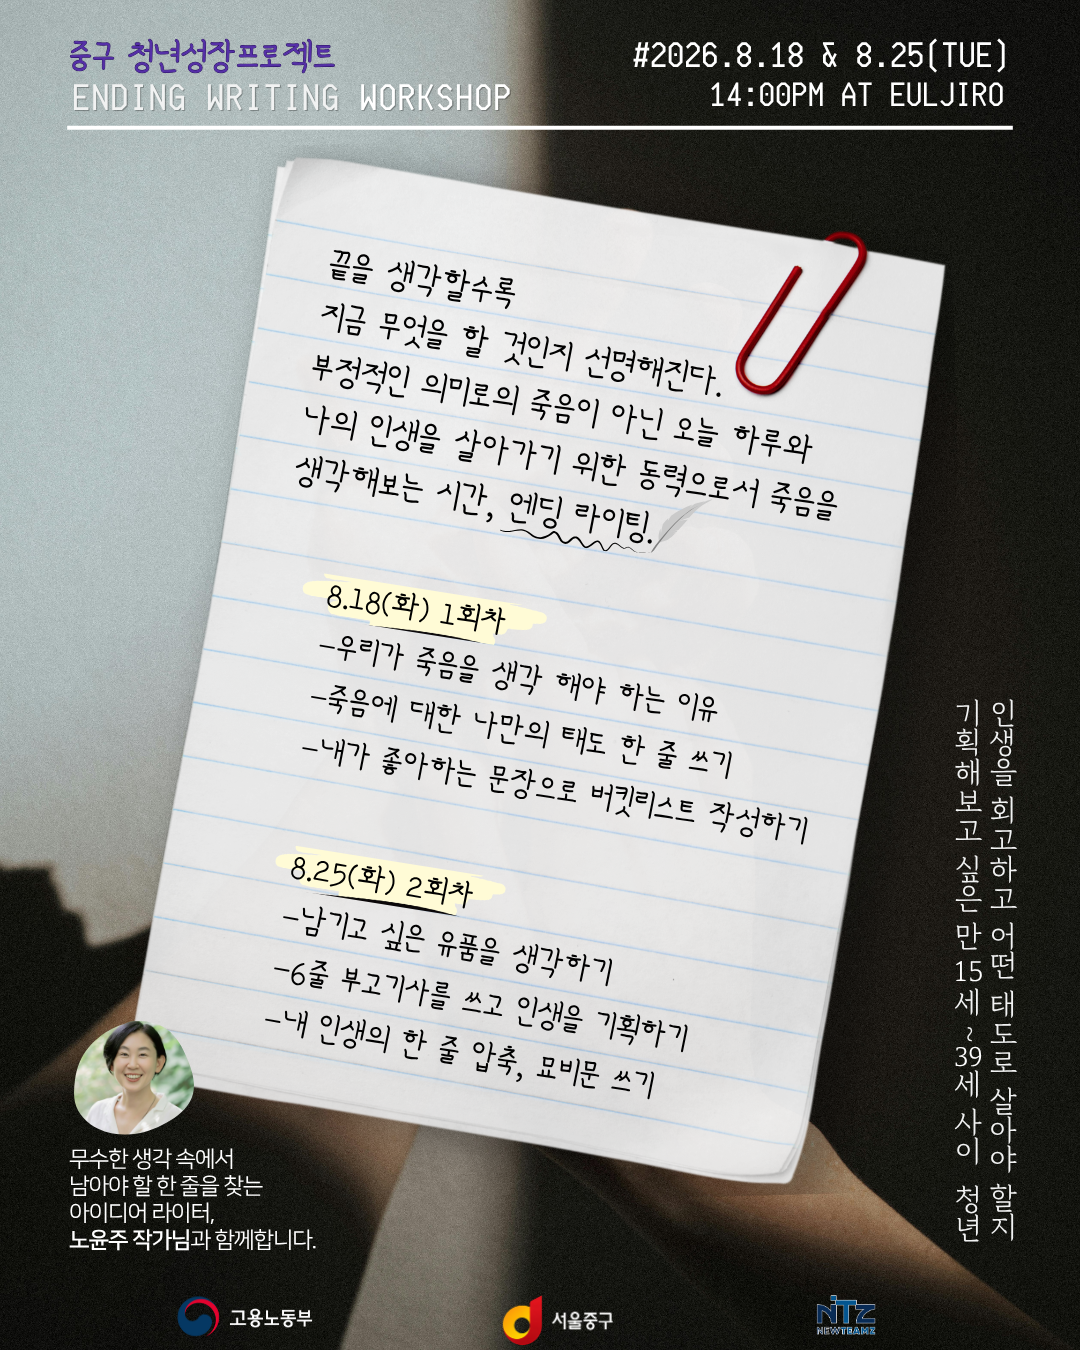 중구 청년성장프로젝트
ENDING WRITING WORKSHOP
#2026.8.18 & 8.25(TUE)
14:00PM AT EULJIRO
끝을 생각할수록
지금 무엇을 할 것인지 선명해진다.
부정적인 의미로의 죽음이 아닌 오늘 하루와
나의 인생을 살아가기 위한 동력으로서 죽음을
생각해보는 시간, 엔딩 라이팅.
8.18(화) 1회차
-우리가 죽음을 생각 해야 하는 이유
-죽음에 대한 나만의 태도 한 줄 쓰기
-내가 좋아하는 문장으로 버킷리스트 작성하기
8.25(화) 2회차
-남기고 싶은 유품을 생각하기
-6줄 부고기사를 쓰고 인생을 기획하기
-내 인생의 한 줄 압축, 묘비문 쓰기
인생을 회고하고 어떤 태도로 살아야 할지
기획해보고 싶은 만 15세 ~ 39세 사이 청년
무수한 생각 속에서
남아야 할 한 줄을 찾는
아이디어 라이터,
노윤주 작가님과 함께합니다.
고용노동부
서울중구
NTZ
NEWTEAMZ